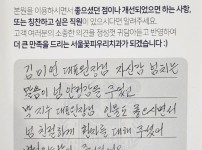 본원을 이용하시면서 좋으셨던 점이나 개선되었으면 하는 사항,
또는 칭찬하고 싶은 직원이 있으시다면 알려주세요.
고객 여러분의 소중한 의견을 정성껏 귀담아듣고 반영하여
더 큰 만족을 드리는 서울꽃피우리치과가 되겠습니다 :)
김미연 대표원장님 자신감 넘치는
말씀이 넘 안정감을 주었고
박지수 대표원장님 인물도 좋으시면서
넘 친절하게 환자를 대해 주셔서